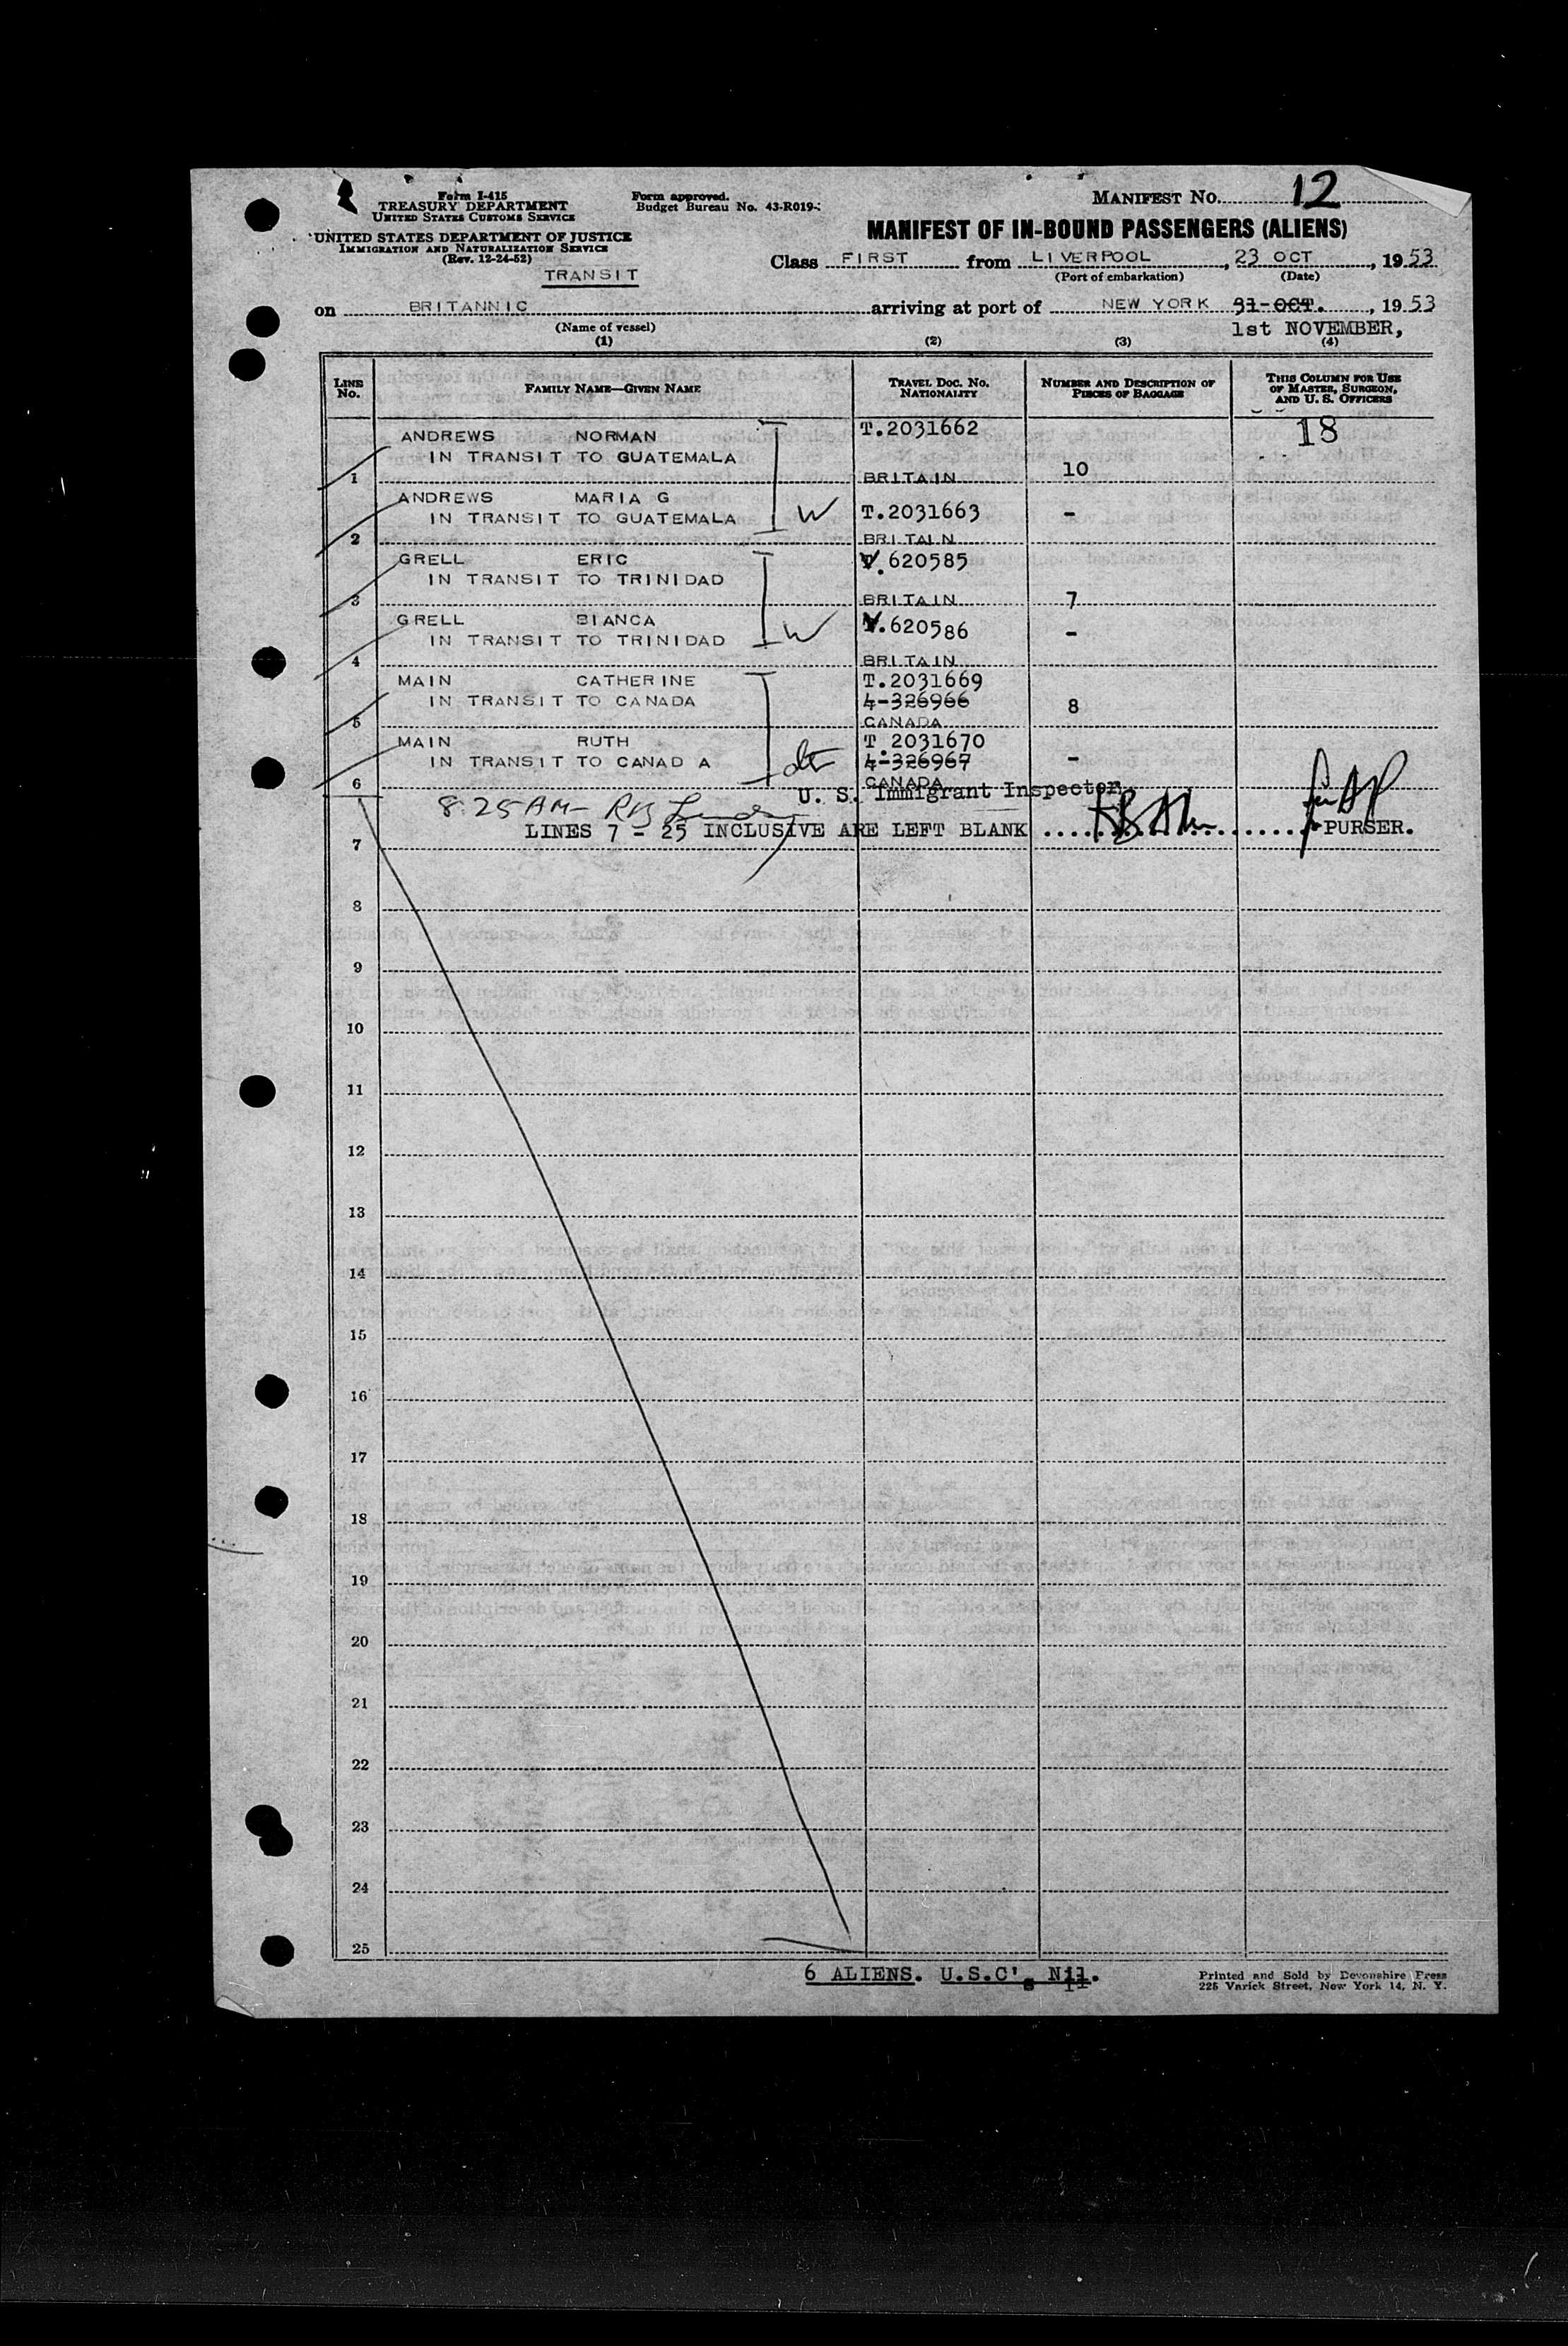 Form I-415
TREASURY DEPARTMENT
UNITED STATES CUSTOMS SERVICE
UNITED STATES DEPARTMENT OF JUSTICE
IMMIGRATION AND NATURALIZATION SERVICE
(Rev. 12-24-52)
TRANSIT
Form approved.
Budget Bureau No. 43-R019-
MANIFEST No. 12
MANIFEST OF IN-BOUND PASSENGERS (ALIENS)
Class FIRST from LIVERPOOL, 23 OCT, 1953
(Port of embarkation) (Date)
on BRITANNIC arriving at port of NEW YORK 31-OCT., 1953
(Name of vessel) 1st NOVEMBER,
(1) (2) (3) (4)
LINE No. FAMILY NAME—GIVEN NAME TRAVEL DOC. NO. NATIONALITY NUMBER AND DESCRIPTION OF PIECES OF BAGGAGE THIS COLUMN FOR USE OF MASTER, SURGEON, AND U. S. OFFICERS
ANDREWS NORMAN T.2031662 18
IN TRANSIT TO GUATEMALA
1 BRITAIN 10
ANDREWS MARIA G
IN TRANSIT TO GUATEMALA W T.2031663 -
2 BRITAIN
GRELL ERIC V.620585
IN TRANSIT TO TRINIDAD
3 BRITAIN 7
GRELL BIANCA V.620586
IN TRANSIT TO TRINIDAD W -
4 BRITAIN
MAIN CATHERINE T.2031669
IN TRANSIT TO CANADA 4-326966 8
5 CANADA
MAIN RUTH T.2031670
IN TRANSIT TO CANAD A 4-326967 -
6 CANADA
8:25 AM- U. S. Immigrant Inspector
LINES 7 - 25 INCLUSIVE ARE LEFT BLANK PURSER.
7
8
9
10
11
12
13
14
15
16
17
18
19
20
21
22
23
24
25
6 ALIENS. U.S.C's Nil.
Printed and Sold by Devonshire Press
225 Varick Street, New York 14, N. Y.